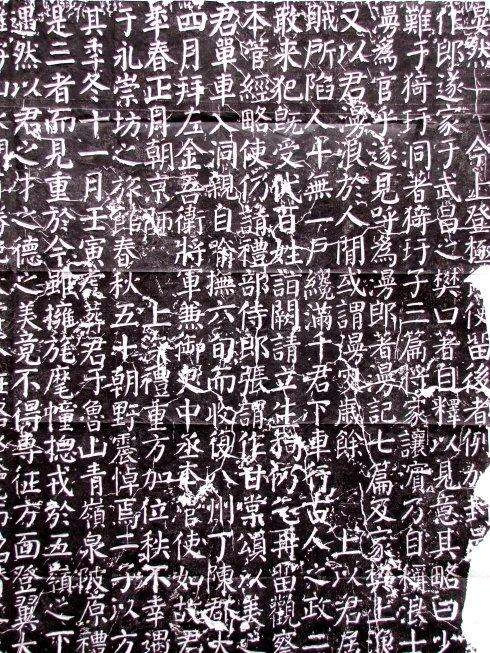 今上登極 使留後者例加封
作郎遂家于武昌之樊口著自釋以見意其略曰少
難于猗玗洞著猗玗子三篇將家讓濱乃自稱浪士
漫為官乎遂見呼為漫郎著漫記七篇及家樊上漁
又以君漫浪於人間或謂漫叟歲餘 上以君居
賊所陷人十無一戶纔滿千君下車行古人之政二
敢來犯既受代百姓詣闕請立生祠仍乞再留觀察
本管經略使仍請禮部侍郎張謂作甘棠頌以美
君單車入洞親自喻撫六旬而收復八州丁陳郡太
四月拜左金吾衛將軍兼御史中丞本管使如故君
年春正月朝京師 上深禮重方加位秩不幸遇
于永崇坊之旅館春秋五十朝野震悼焉二子以方
其年冬十一月壬寅虔葬君于魯山青嶺泉陂原禮
是二者而見重於今雖擁旄麾幢總戎於五嶺之下
遇然以君之才之德之美竟不得專征方面登翼太